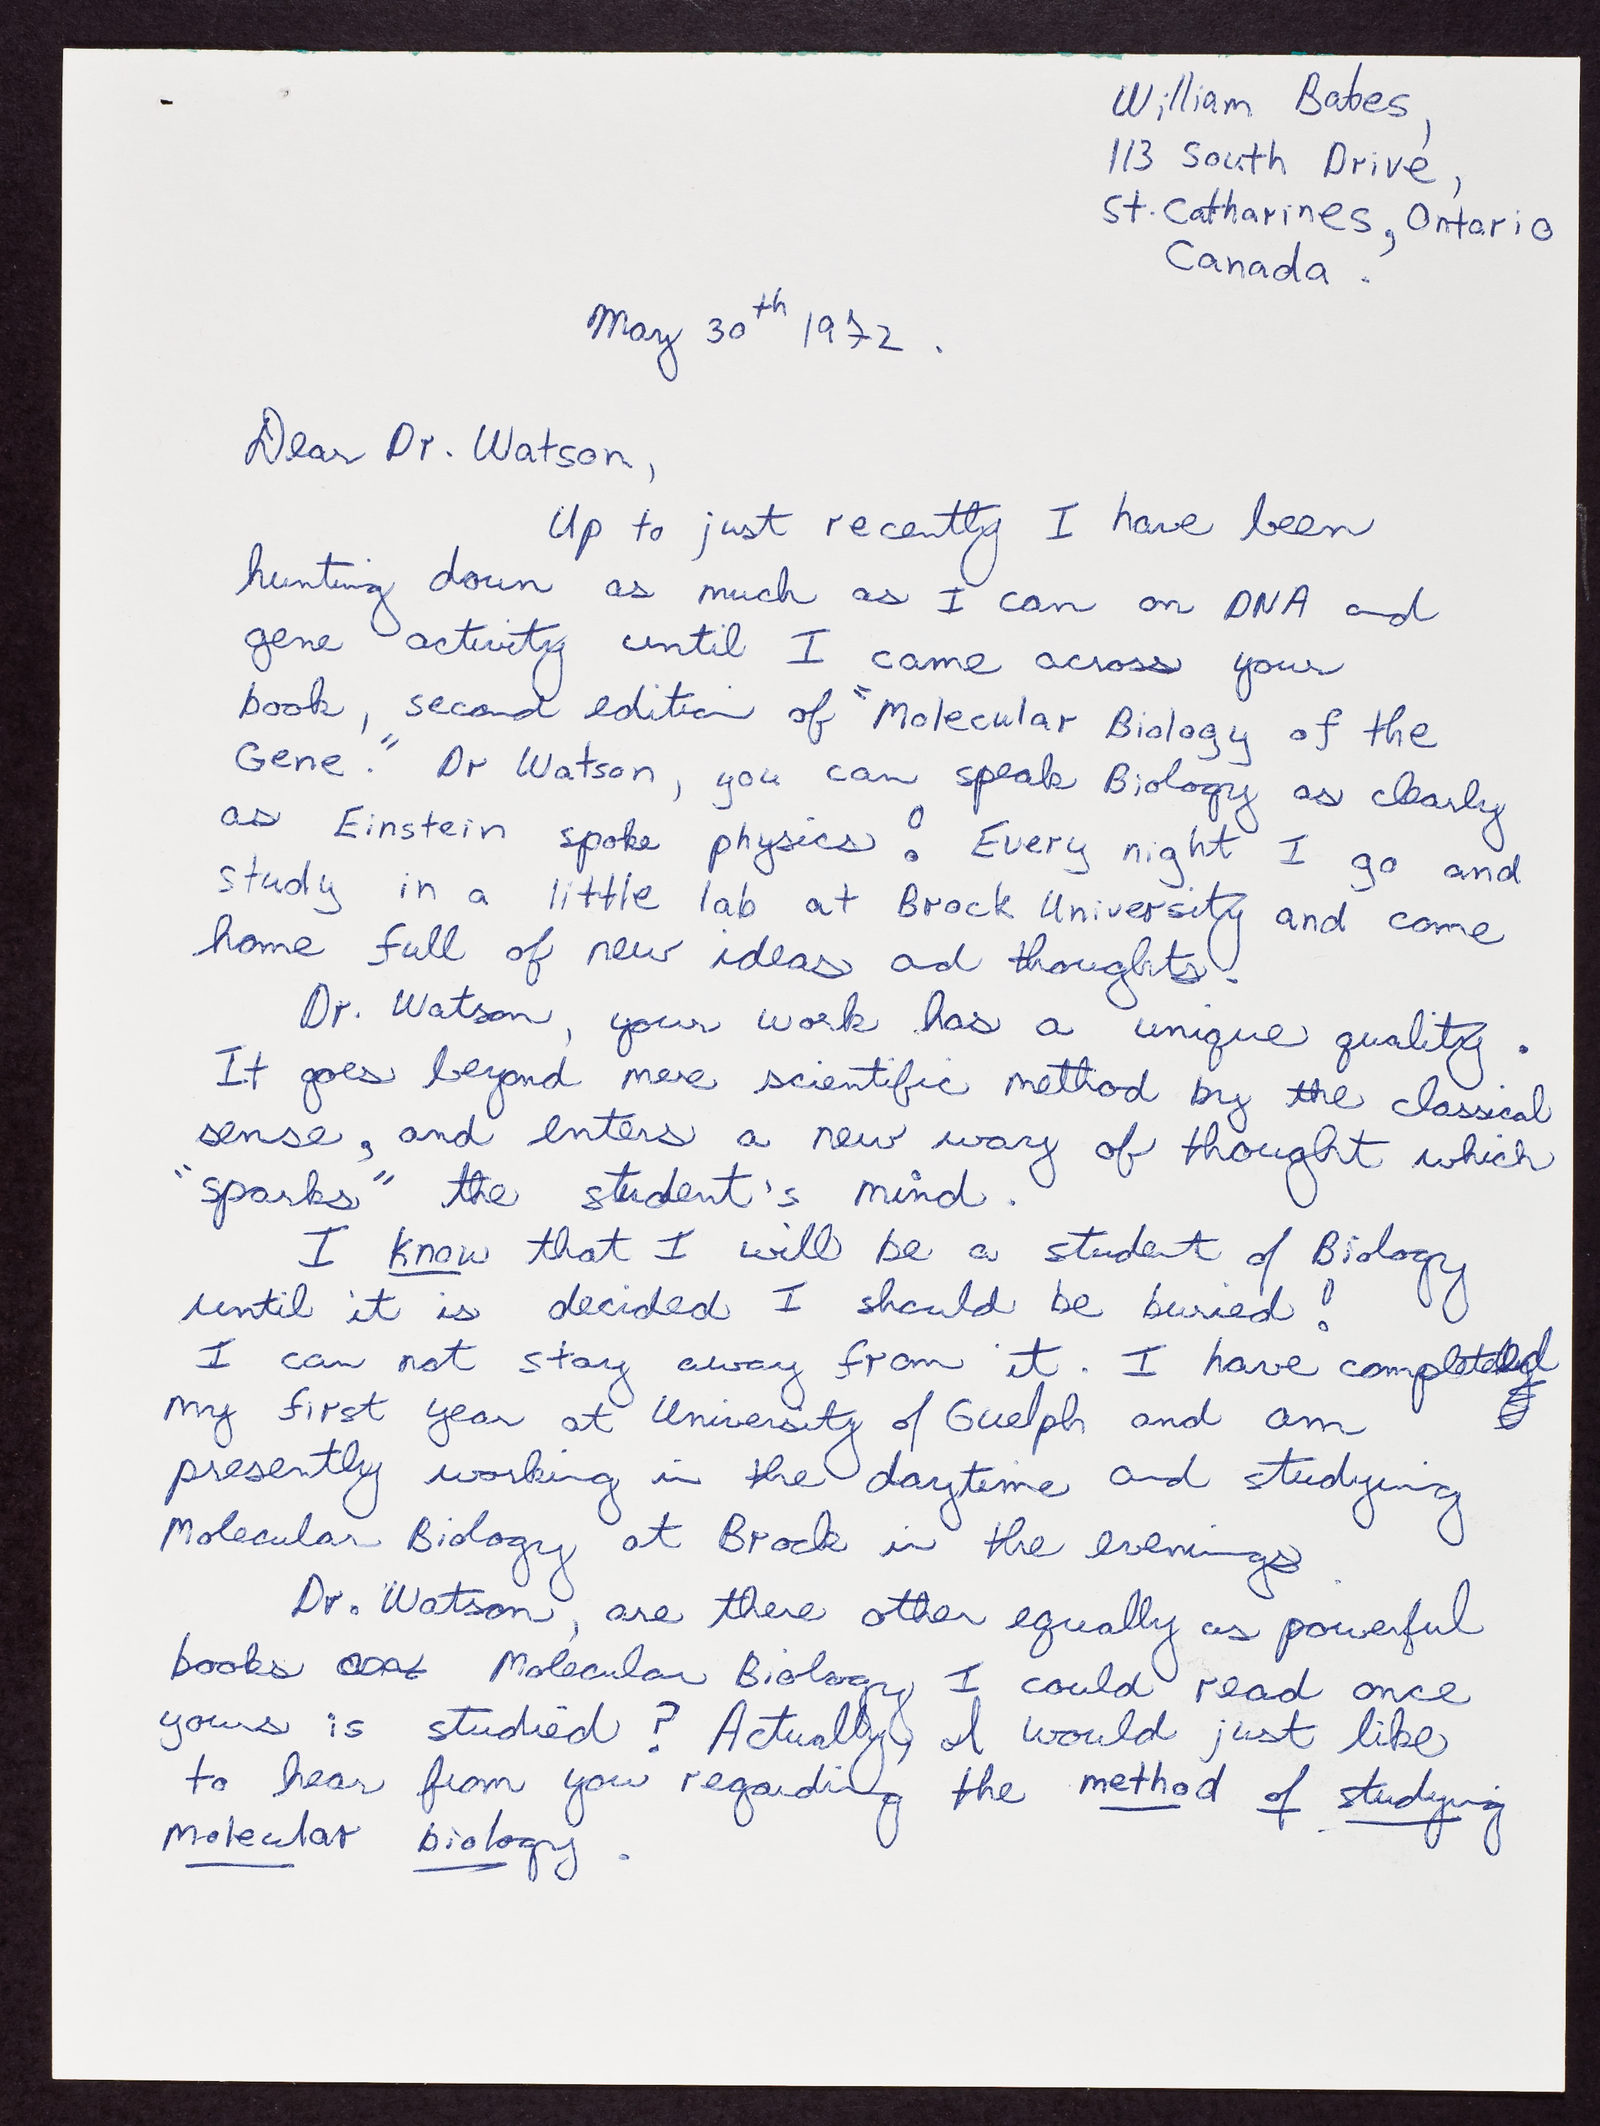 William Babes,
113 South Drive,
St. Catharines, Ontario
Canada.
May 30th 1972.
Dear Dr. Watson,
Up to just recently I have been
hunting down as much as I can on DNA and
gene activity until I came across your
book, second edition of "Molecular Biology of the
Gene." Dr Watson, you can speak Biology as clearly
as Einstein spoke physics! Every night I go and
study in a little lab at Brock University and come
home full of new ideas ad thoughts.
Dr. Watson, your work has a unique quality.
It goes beyond mere scientific method by the classical
sense, and enters a new way of thought which
"sparks" the student's mind.
I know that I will be a student of Biology
until it is decided I should be buried!
I can not stay away from it. I have completed
my first year at University of Guelph and am
presently working in the daytime and studying
Molecular Biology at Brock in the evenings.
Dr. Watson, are there other equally as powerful
books Molecular Biology I could read once
yours is studied? Actually, I would just like
to hear from you regarding the method of studying
molecular biology.